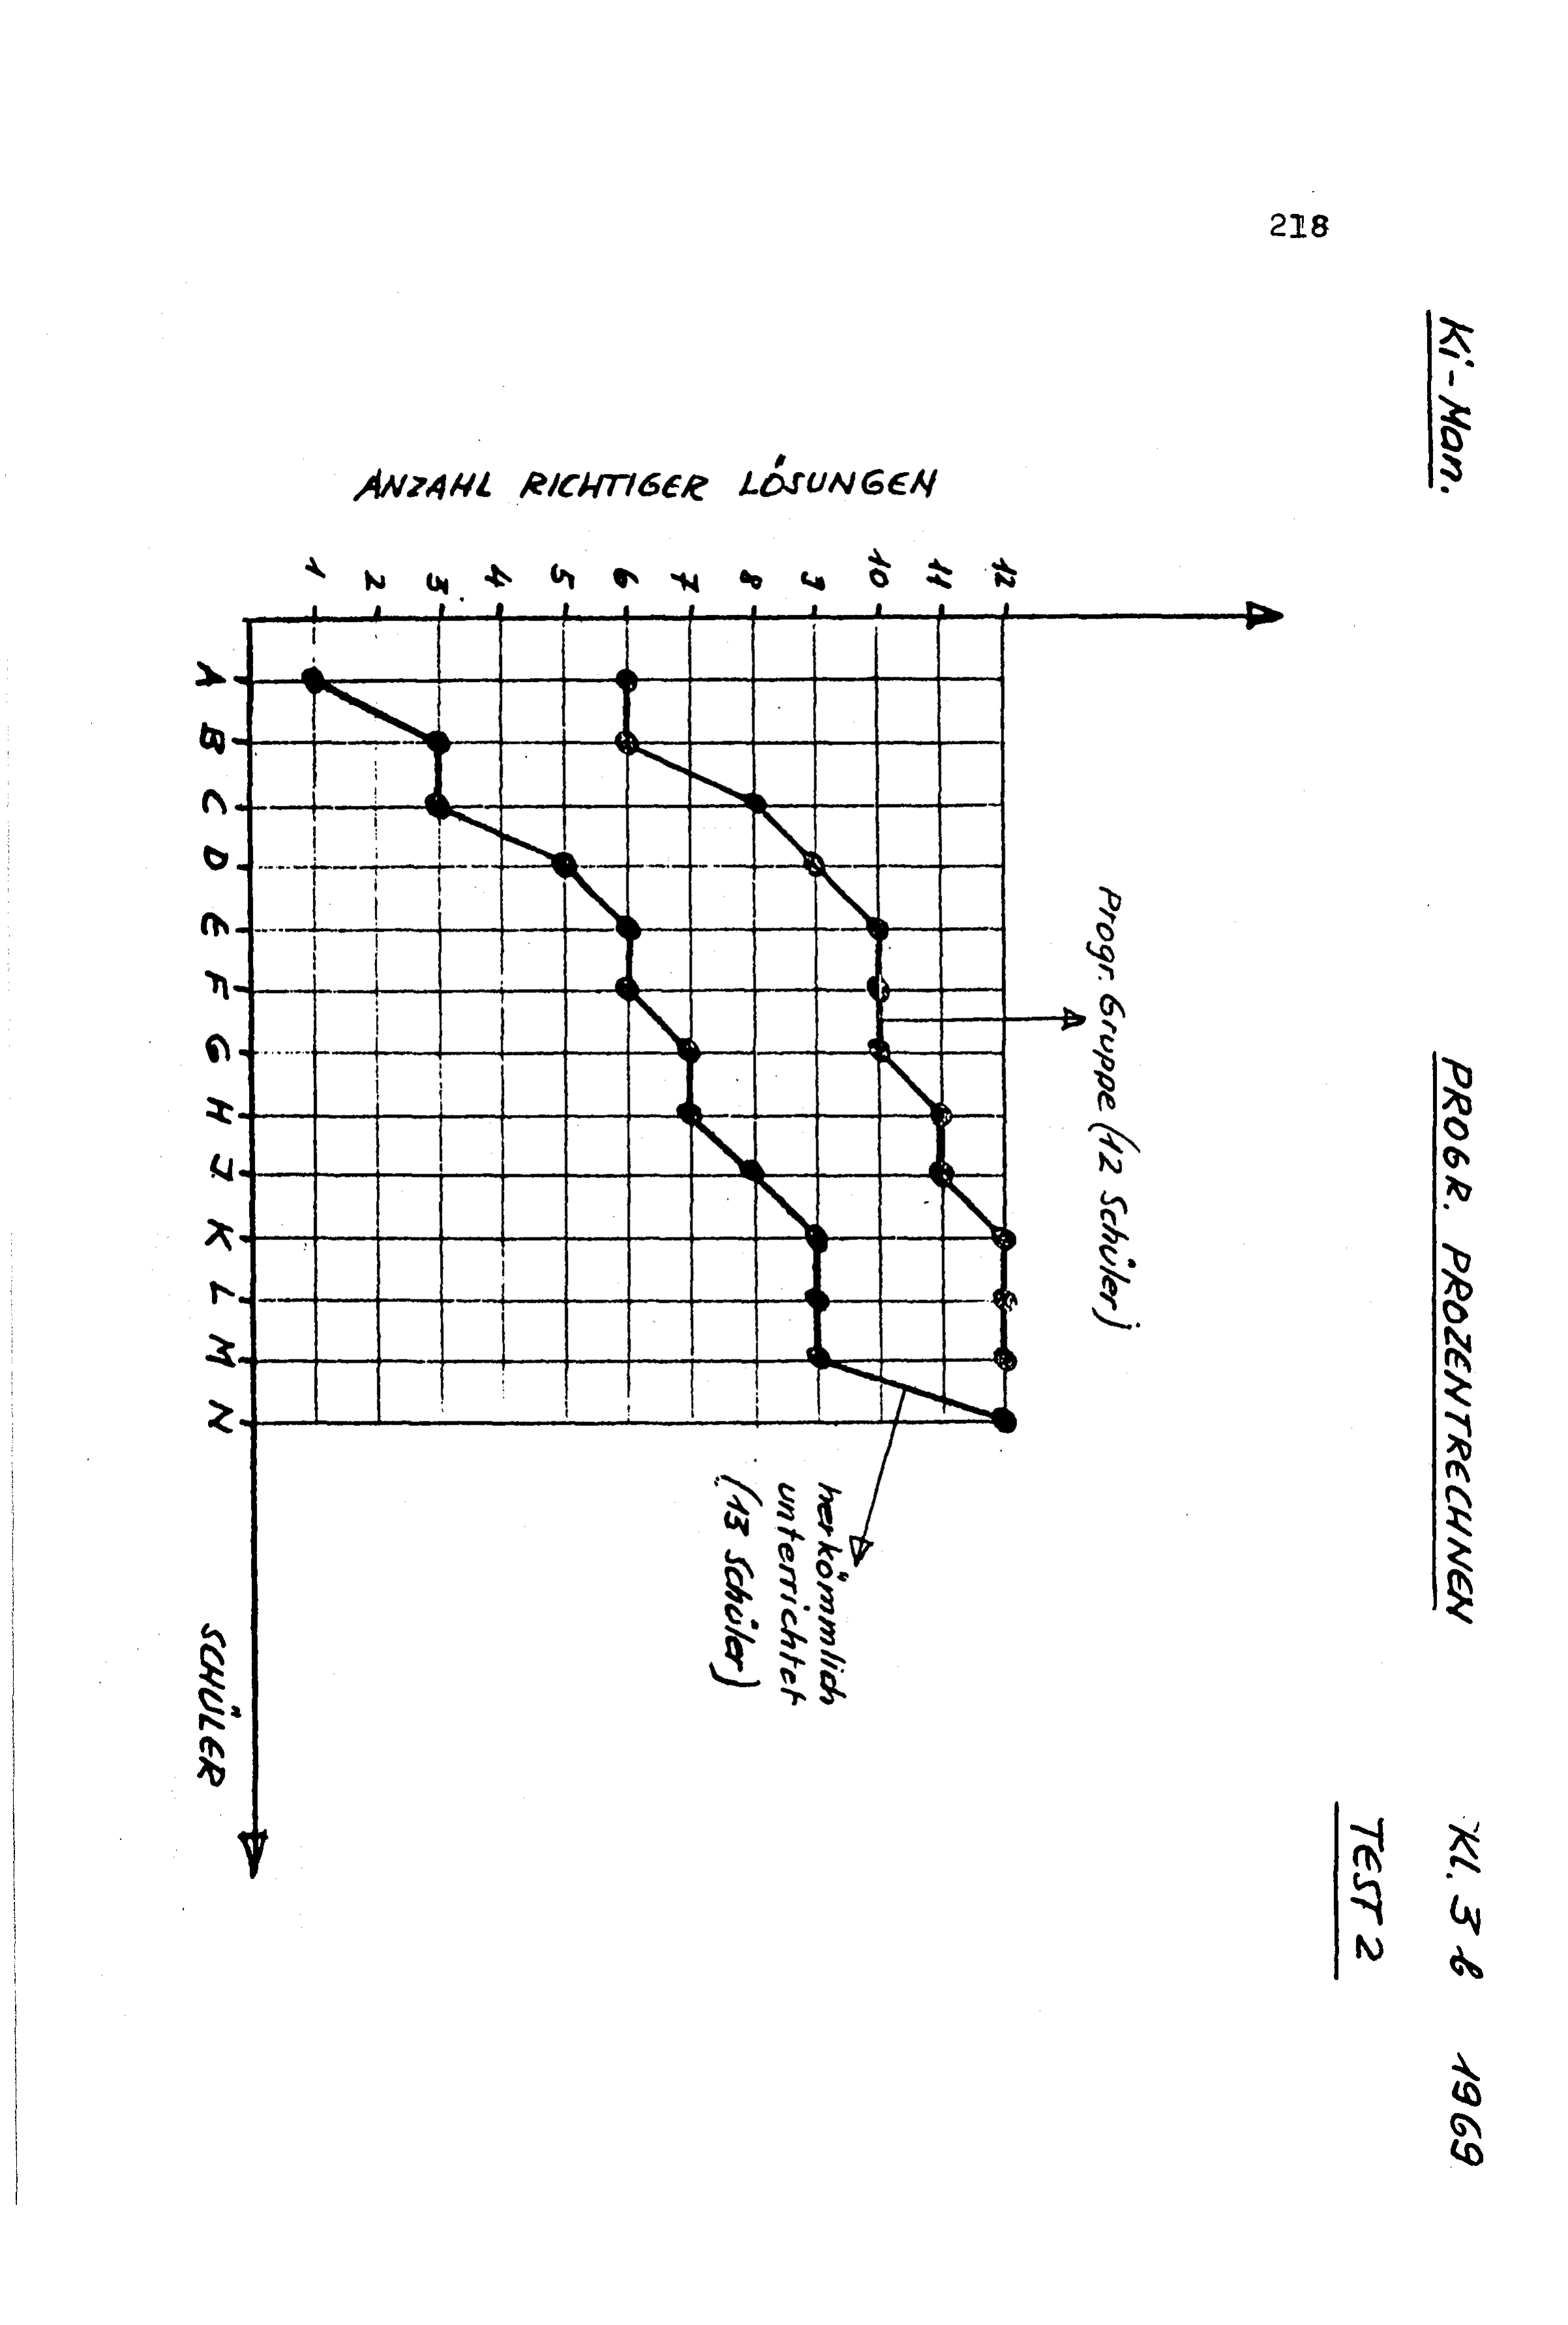 218
Ki-Man.
PROGR. PROZENTRECHNEN
Kl. 3 b 1969
TEST 2
Progr. Gruppe (12 Schüler)
herkömmlich
unterrichtet
(13 Schüler)
ANZAHL RICHTIGER LÖSUNGEN
12
11
10
9
8
7
6
5
4
3
2
1
A B C D E F G H J K L M N
SCHÜLER